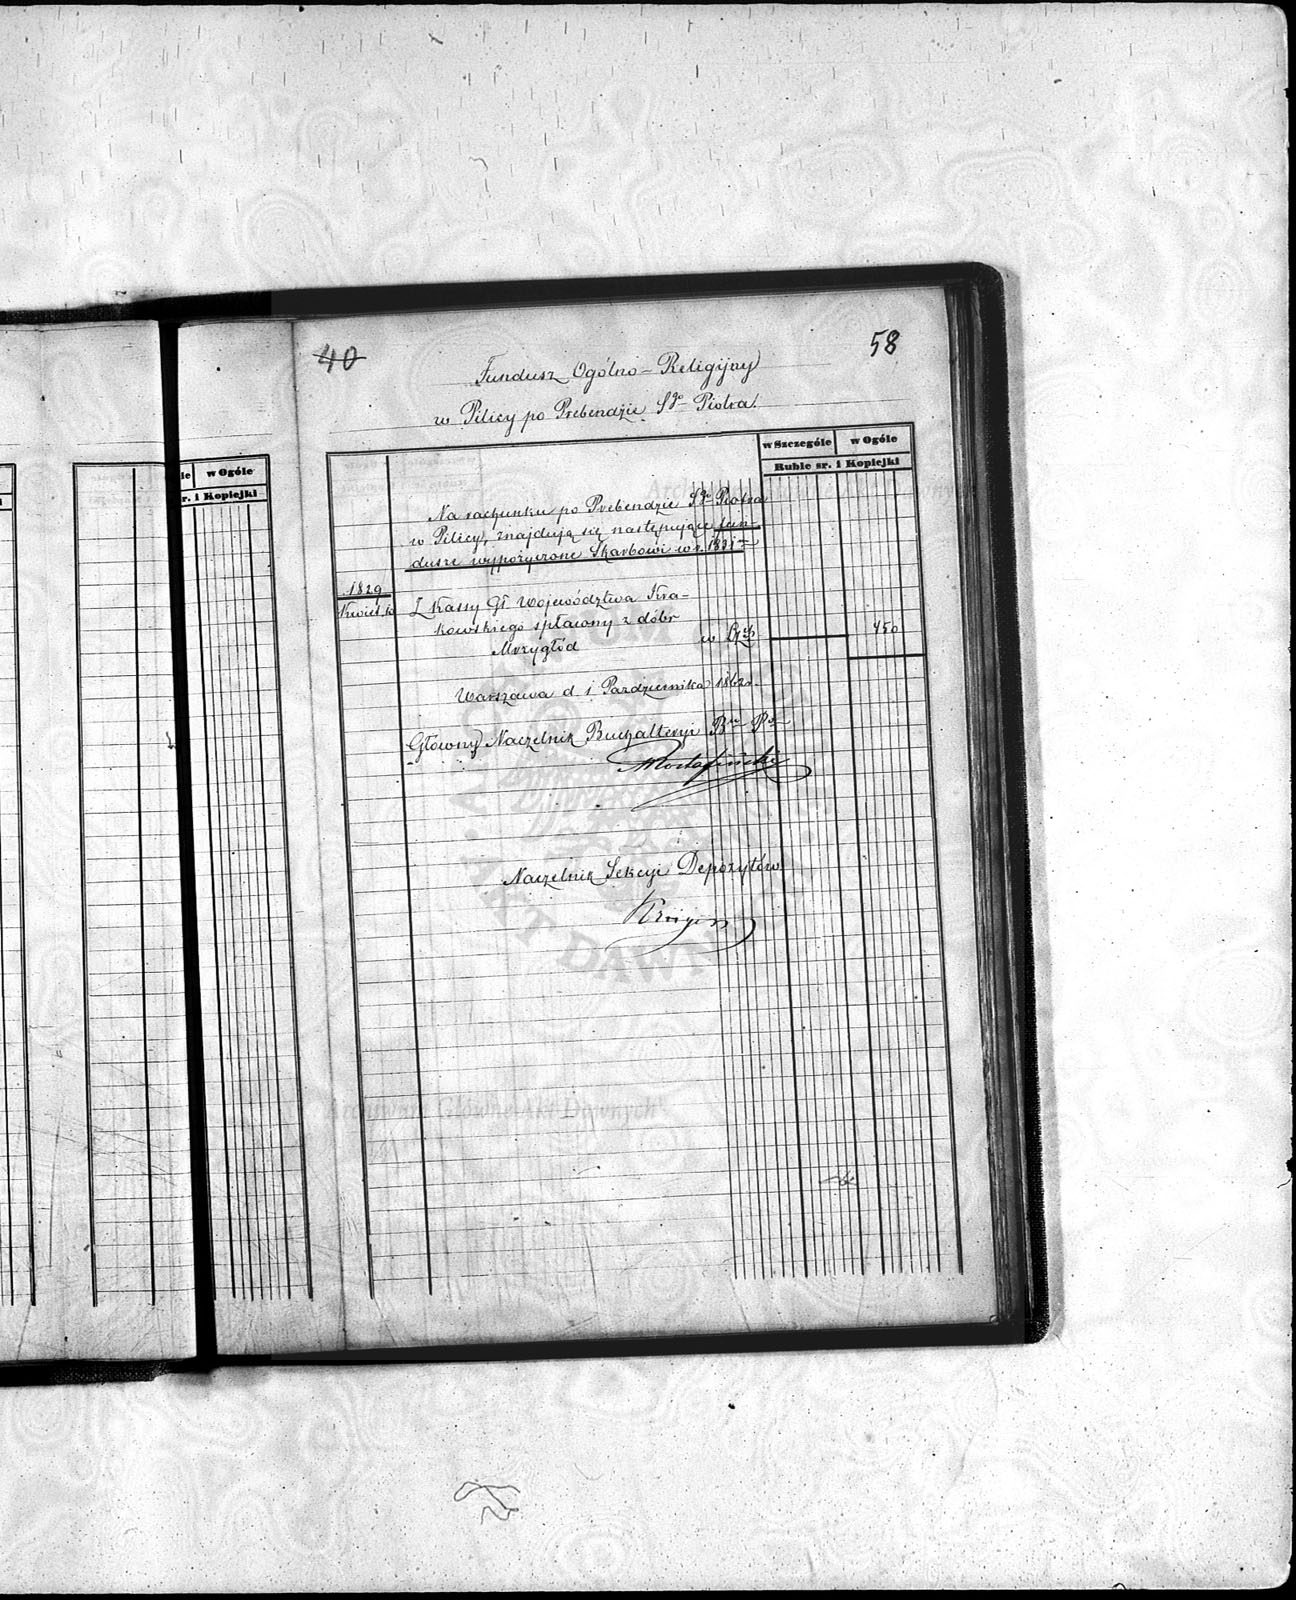 40
58
Fundusz Ogólno-Religijny
w Pilicy po Prebendzie Sgo Piotra.
w Szczególe w Ogóle
Ruble sr. i Kopiejki
le w Ogóle
r. i Kopiejki
Na rachunku po Prebendzie Sgo Piotra
w Pilicy, znajdują się następujące fun-
dusze wypożyczone Skarbowi w r. 1831
1829
Kwiet. 10
Z Kassy Gł Województwa Kra-
kowskiego spłacony z dóbr
Mrzygłód w 450
Warszawa d. 1 Pazdziernika 1862 r.
Główny Naczelnik Buchalteryi
Naczelnik Sekcyi Depozytów
Krüger
Archiwum Główne Akt Dawnych